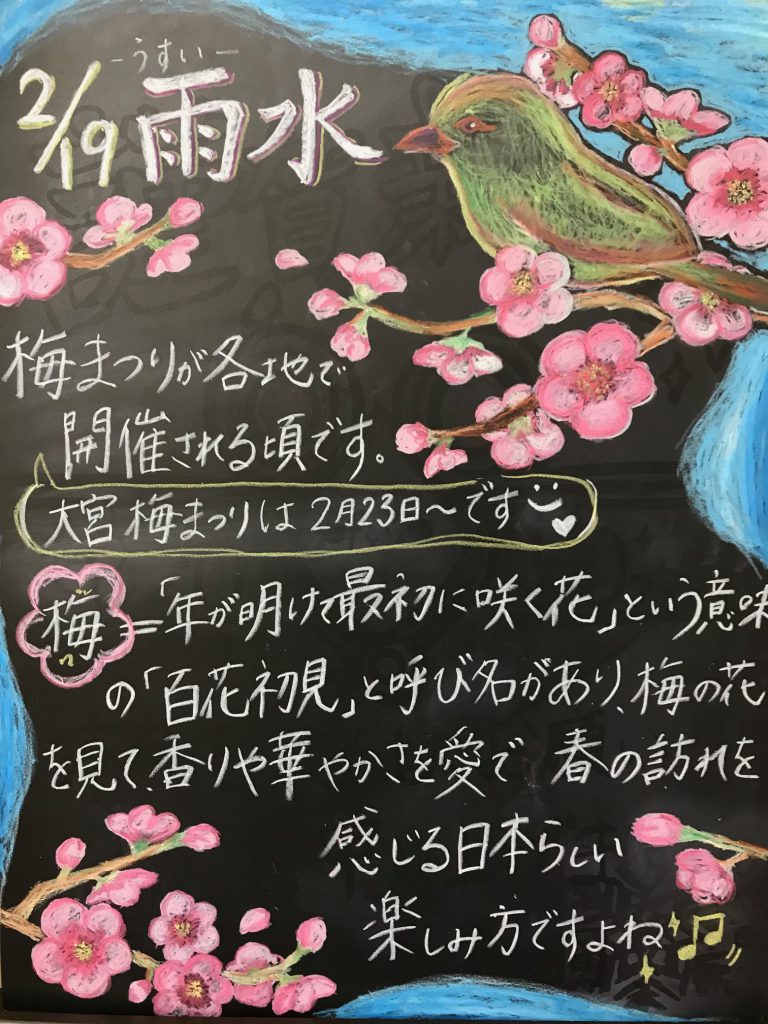 －うすい－
2/19 雨水
梅まつりが各地で
開催される頃です。
大宮梅まつりは2月23日～です
梅=「年が明けて最初に咲く花」という意味
の「百花初見」と呼び名があり、梅の花
を見て、香りや華やかさを愛で 春の訪れを
感じる日本らしい
楽しみ方ですよね♫